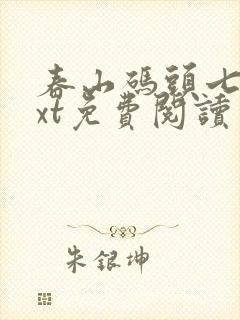 春山碼頭七
xt免費閱讀
朱銀坤